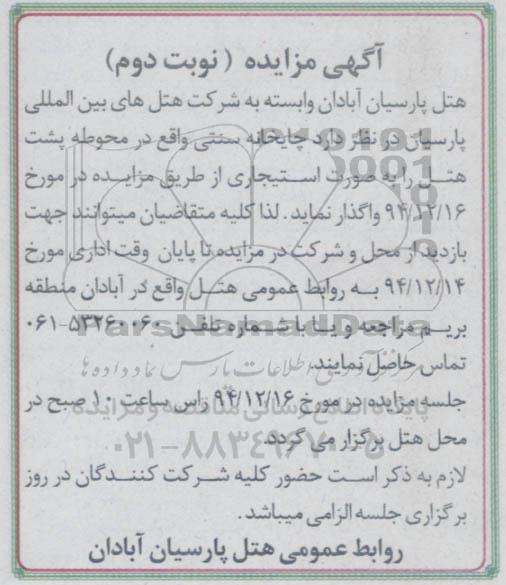 آگهی مزایده (نوبت دوم)
هتل پارسیان آبادان وابسته به شرکت هتل های بین المللی
پارسیان در نظر دارد چایخانه سنتی واقع در محوطه پشت
هتل را به صورت استیجاری از طریق مزایده در مورخ
۹۴/۱۲/۱۶ واگذار نماید. لذا کلیه متقاضیان میتوانند جهت
بازدید از محل و شرکت در مزایده تا پایان وقت اداری مورخ
۹۴/۱۲/۱۴ به روابط عمومی هتل واقع در آبادان منطقه
بریم مراجعه و یا با شماره تلفن ۵۳۲۶۰۰۶۰-۰۶۱
ParsNamadData
تماس حاصل نمایند.
اطلاعات پارس نماد داده ها
جلسه مزایده در مورخ ۹۴/۱۲/۱۶ راس ساعت ۱۰ صبح در
پایگاه اطلاع رسانی مناقصه و مزایده
محل هتل برگزار می گردد.
۰۲۱-۸۸۳۴۹۶۷۰-۵
لازم به ذکر است حضور کلیه شرکت کنندگان در روز
برگزاری جلسه الزامی میباشد.
روابط عمومی هتل پارسیان آبادان